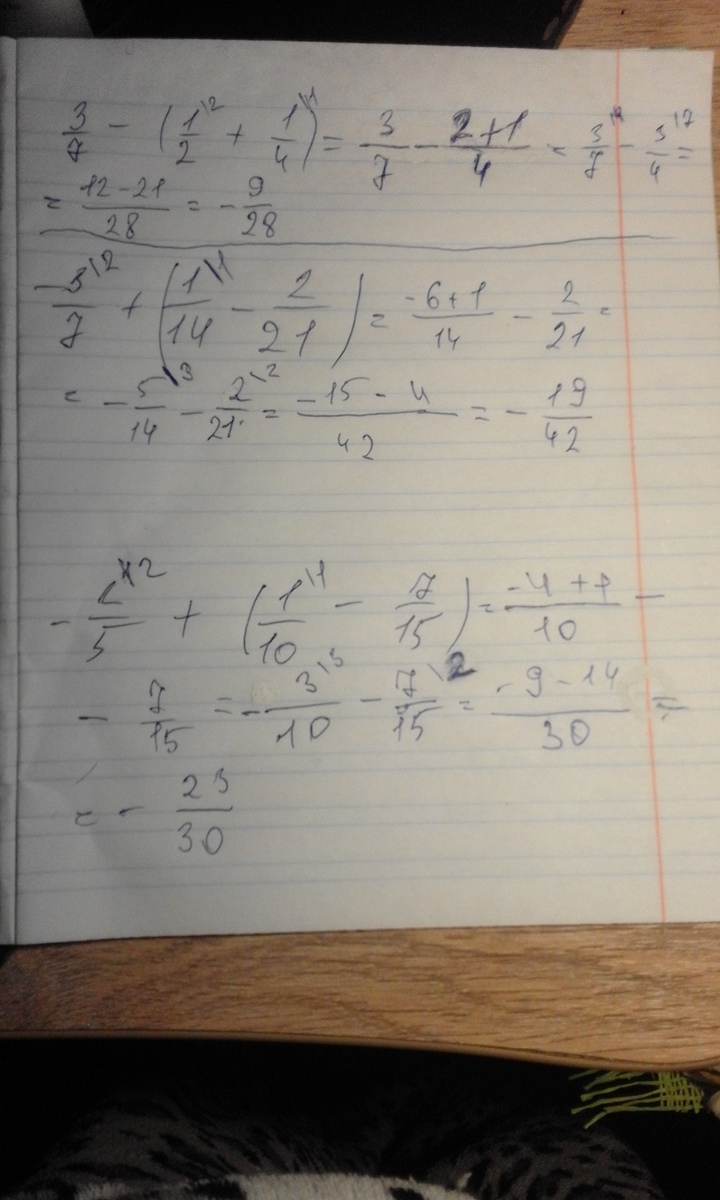 3/7 - (1\2/2 + 1\1/4) = 3/7 - 2+1/4 = 3\4/7 - 3\7/4 =
= 12-21/28 = - 9/28
-3\2/7 + (1\1/14 - 2/21) = -6+1/14 - 2/21 =
= - 5\3/14 - 2\2/21 = -15-4/42 = - 19/42
- 2\2/5 + (1\1/10 - 7/15) = -4+1/10 -
- 7/15 = - 3\3/10 - 7\2/15 = -9-14/30 =
= - 23/30